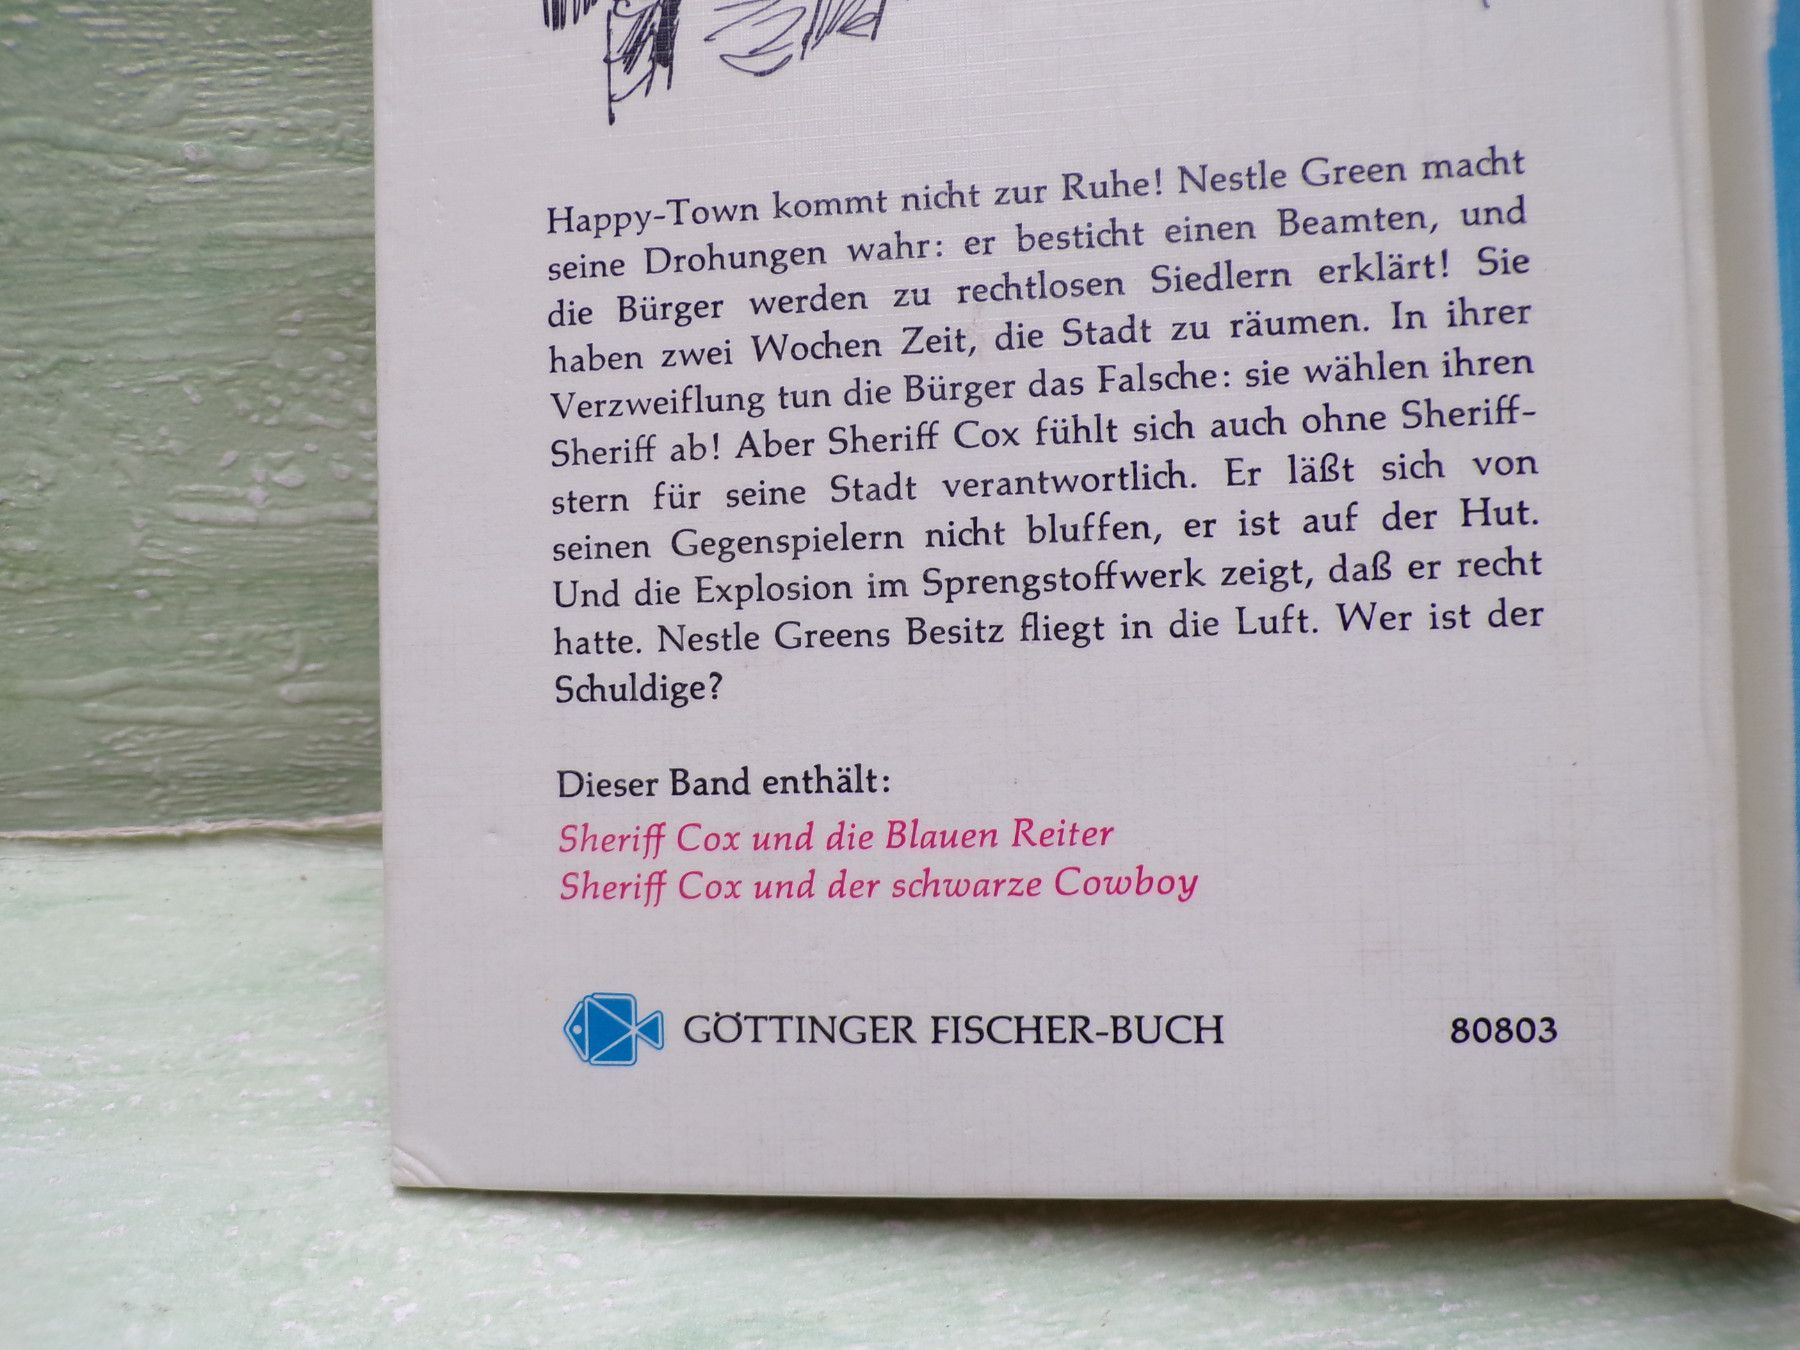 Happy-Town kommt nicht zur Ruhe! Nestle Green macht
seine Drohungen wahr: er besticht einen Beamten, und
die Bürger werden zu rechtlosen Siedlern erklärt! Sie
haben zwei Wochen Zeit, die Stadt zu räumen. In ihrer
Verzweiflung tun die Bürger das Falsche: sie wählen ihren
Sheriff ab! Aber Sheriff Cox fühlt sich auch ohne Sheriff-
stern für seine Stadt verantwortlich. Er läßt sich von
seinen Gegenspielern nicht bluffen, er ist auf der Hut.
Und die Explosion im Sprengstoffwerk zeigt, daß er recht
hatte. Nestle Greens Besitz fliegt in die Luft. Wer ist der
Schuldige?
Dieser Band enthält:
Sheriff Cox und die Blauen Reiter
Sheriff Cox und der schwarze Cowboy
GÖTTINGER FISCHER-BUCH 80803